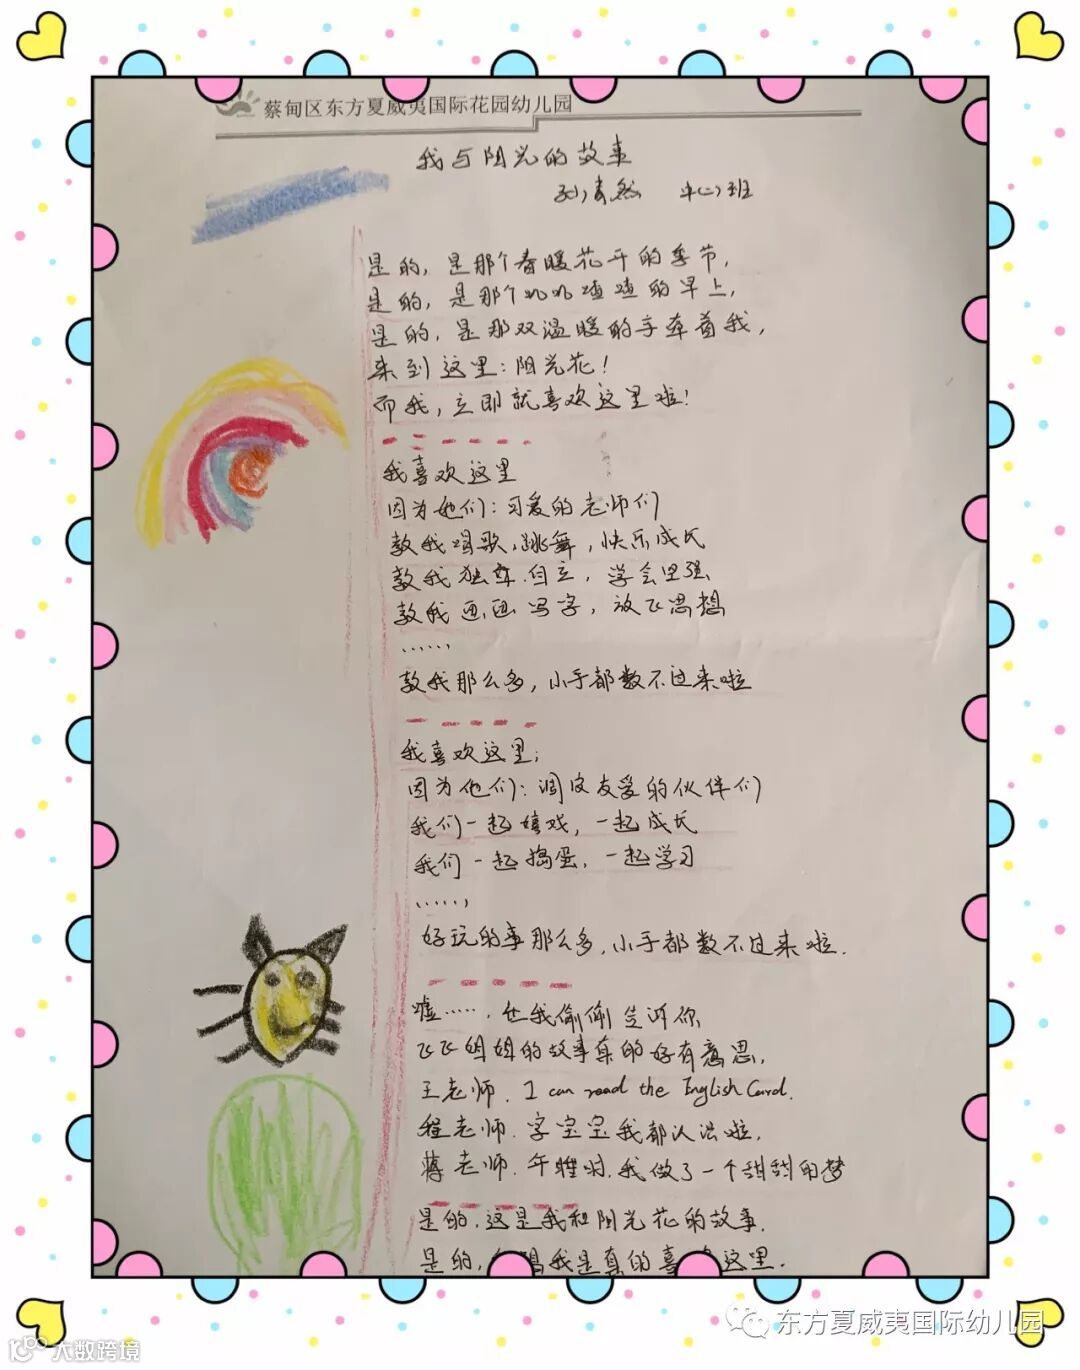 蔡甸区东方夏威夷国际花园幼儿园
我与阳光的故事
然 班
是的，是那个春暖花开的季节，
是的，是那个叽叽喳喳的早上，
是的，是那双温暖的手牵着我，
来到这里：阳光花！
而我，立即就喜欢这里啦！
我喜欢这里
因为她们：可爱的老师们
教我唱歌，跳舞，快乐成长
教我独立.自立，学会坚强
教我画画写字，放飞思想
……
教我那么多，小手都数不过来啦
我喜欢这里；
因为他们：调皮友爱的伙伴们
我们一起嬉戏，一起成长
我们一起捣蛋，一起学习
……，
好玩的事那么多，小手都数不过来啦.
嘘……，让我偷偷告诉你
飞飞姐姐的故事真的好有意思，
王老师. I can read the English Card.
程老师.字宝宝我都认识啦，
蒋老师.午睡时.我做了一个甜甜的梦
是的.这是我和阳光花的故事.
是的， 我是真的喜 这里.
东方夏威夷国际幼儿园
大数跨境